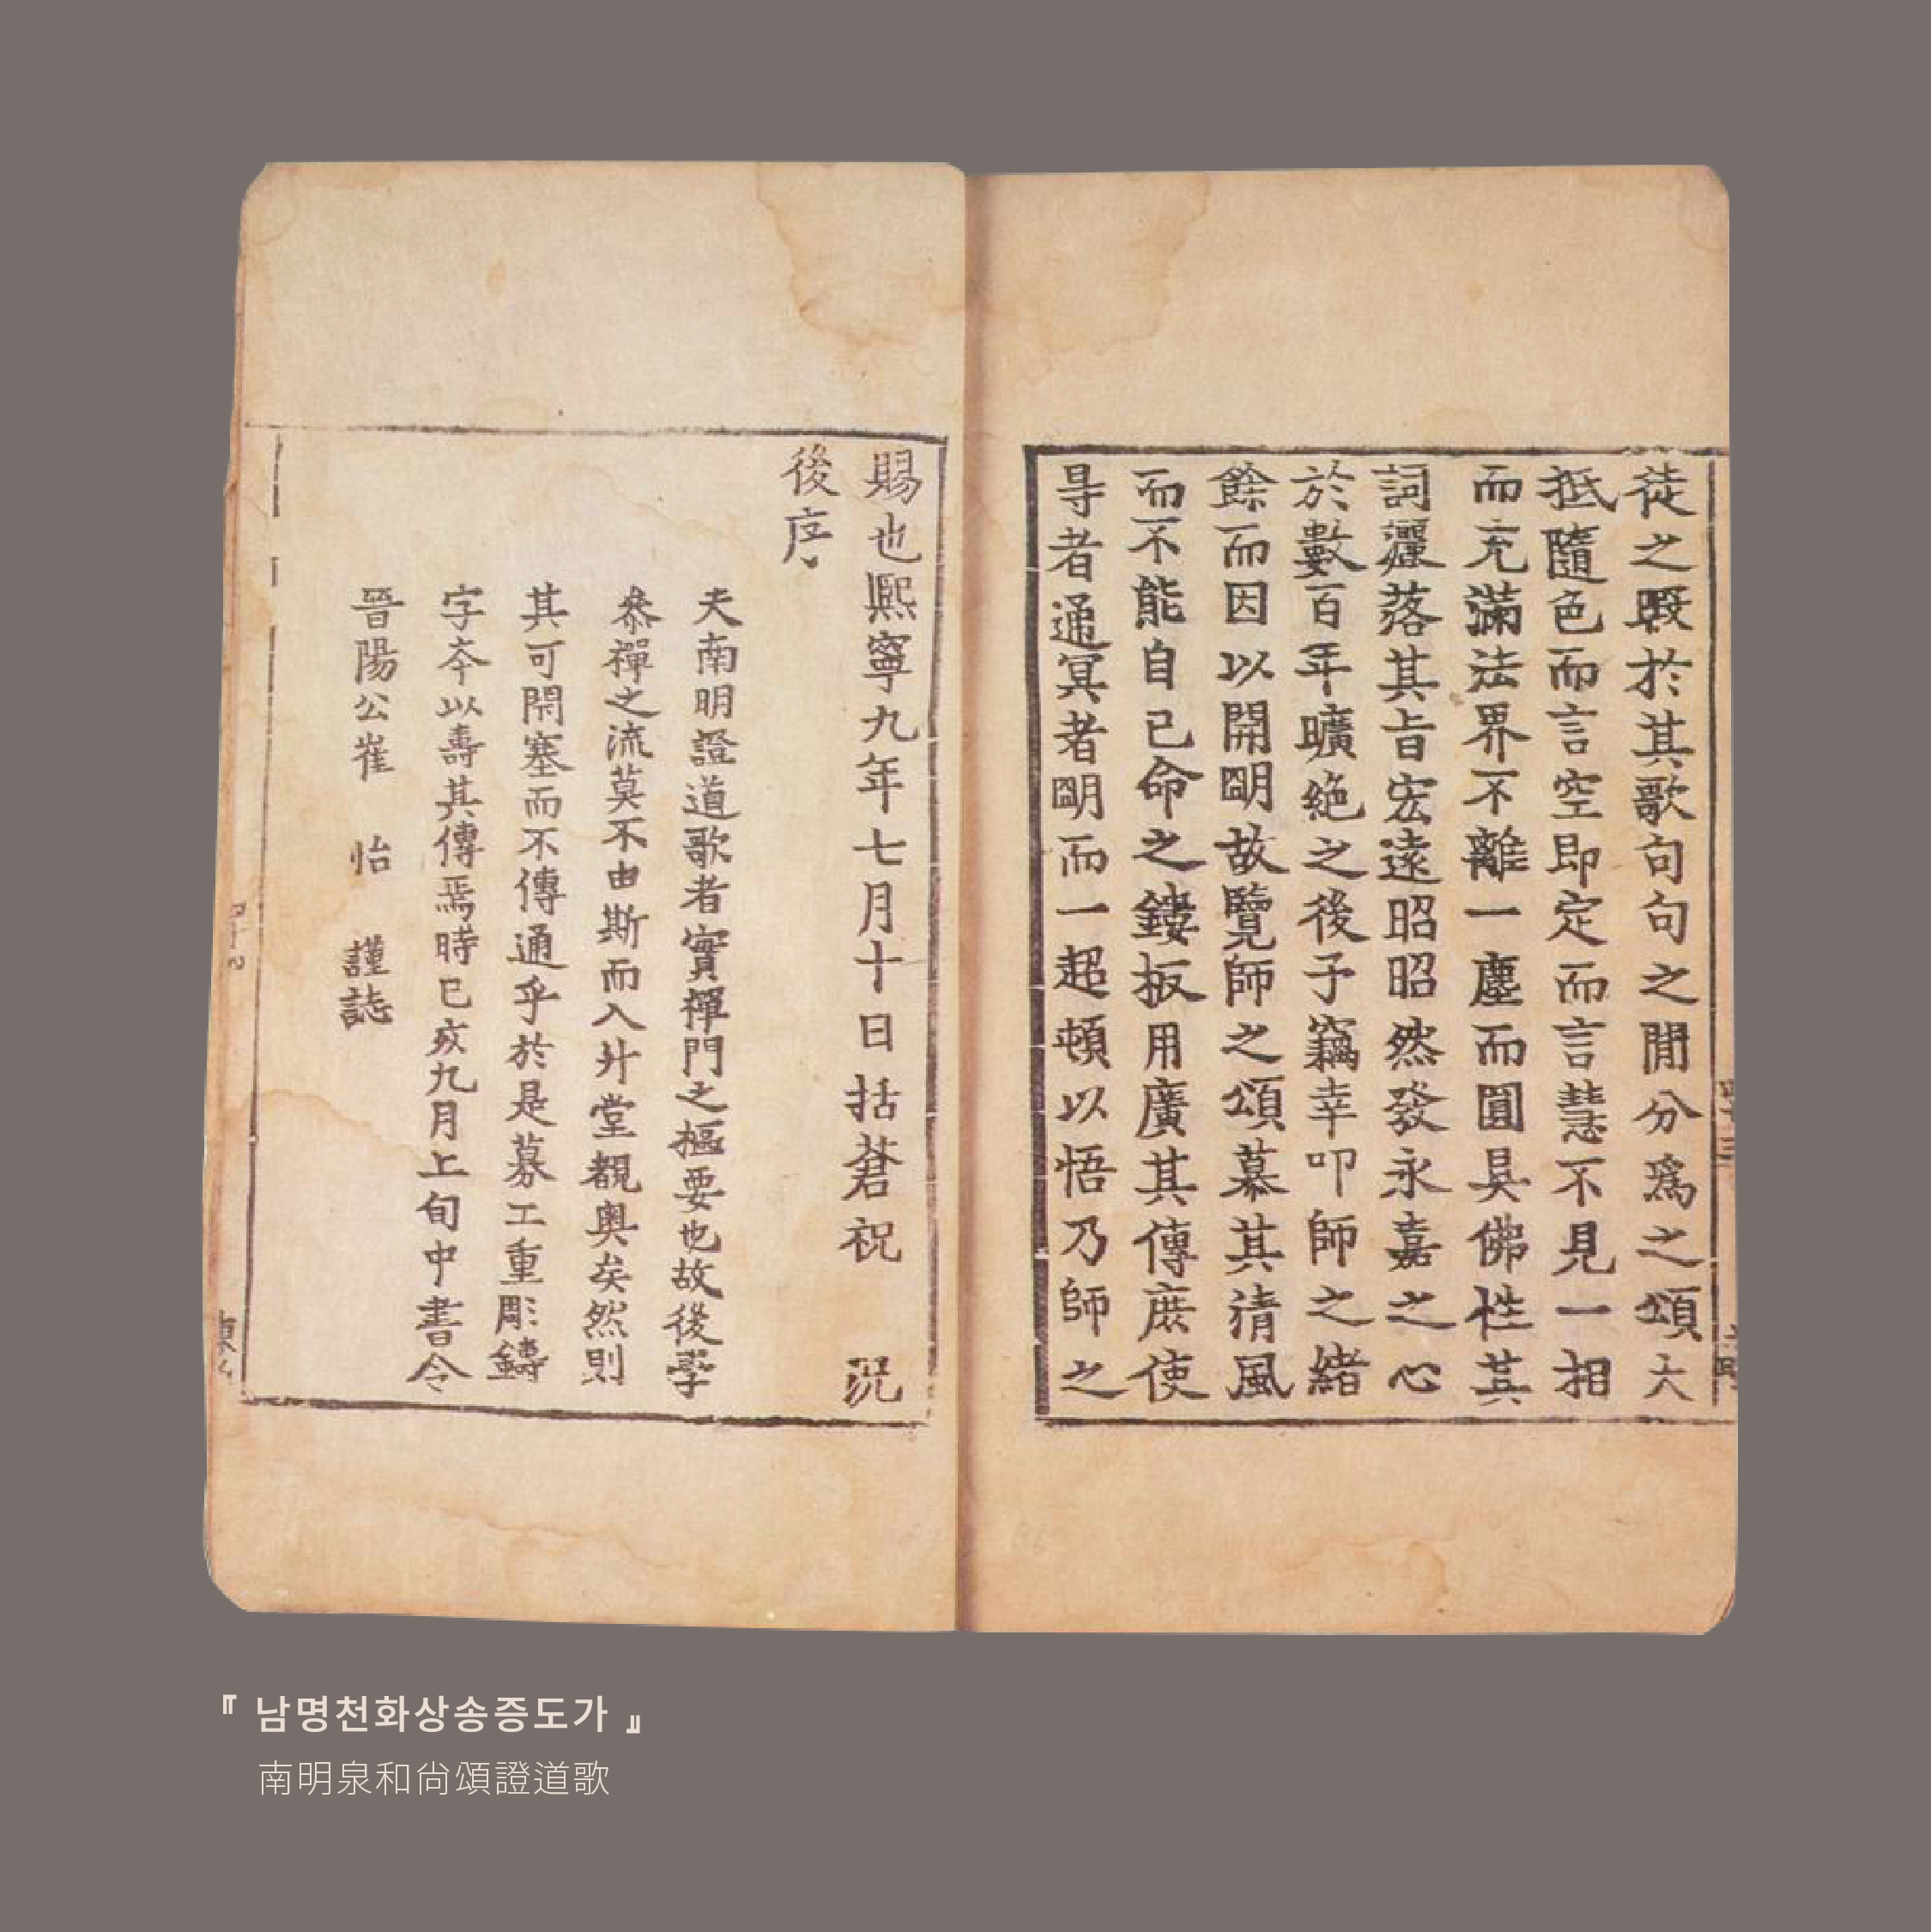 徒之殹於其歌句句之閒分爲之頌大
抵隨色而言空即定而言慧不見一相
而充滿法界不離一塵而圓具佛性其
詞灑落其旨宏遠昭昭然發永嘉之心
於數百年曠絶之後予竊幸叩師之緒
餘而因以開明故覽師之頌慕其淸風
而不能自已命之鏤板用廣其傳庶使
㝵者通冥者明而一超頓以悟乃師之
賜也熙寧九年七月十日括蒼祝 況
後序
夫南明證道歌者實禪門之樞要也故後學
叅禪之流莫不由斯而入升堂覩奥矣然則
其可閇塞而不傳通乎於是募工重彫鑄
字夲以壽其傳焉時已亥九月上旬中書令
晉陽公崔 怡 謹誌
『 남명천화상송증도가 』
南明泉和尙頌證道歌